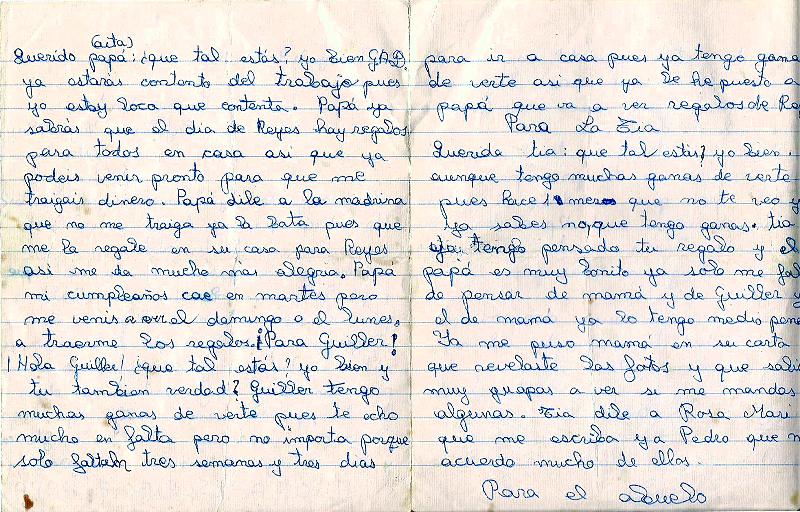 (aita)
Querido papá: ¿que tal estás? yo bien G.A.D.
ya estarás contento del trabajo pues
yo estoy loca que contenta. Papá ya
sabrás que el dia de Reyes hay regalos
para todos en casa asi que ya
podeis venir pronto para que me
traigais dinero. Papá dile a la madrina
que no me traiga ya la bata pues que
me la regale en su casa para Reyes
asi me da mucho más alegria. Papá
mi cumpleaños cae en martes pero
me venis a ver el domingo o el lunes,
a traerme los regalos. ¡Para Guiller!
¡Hola Guiller! ¿que tal estás? yo bien y
tu tambien verdad? Guiller tengo
muchas ganas de verte pues te echo
mucho en falta pero no importa porque
solo faltan tres semanas y tres dias
para ir a casa pues ya tengo gana
de verte asi que ya le he puesto a
papá que va a ver regalos de Re
Para La Tia
Querida tia: que tal estás? yo bien
aunque tengo muchas ganas de verte
pues hace 1 mes que no te veo y
ya sabes no, que tengo ganas. tia
ya tengo pensado tu regalo y el
papá es muy bonito ya solo me fal
de pensar de mamá y de Guiller y
el de mamá ya lo tengo medio pen
Ya me puso mamá en su carta
que revelaste las fotos y que sali
muy guapas a ver si me mandas
algunas. Tia dile a Rosa Mari
que me escriba y a Pedro que m
acuerdo mucho de ellos.
Para el abuelo